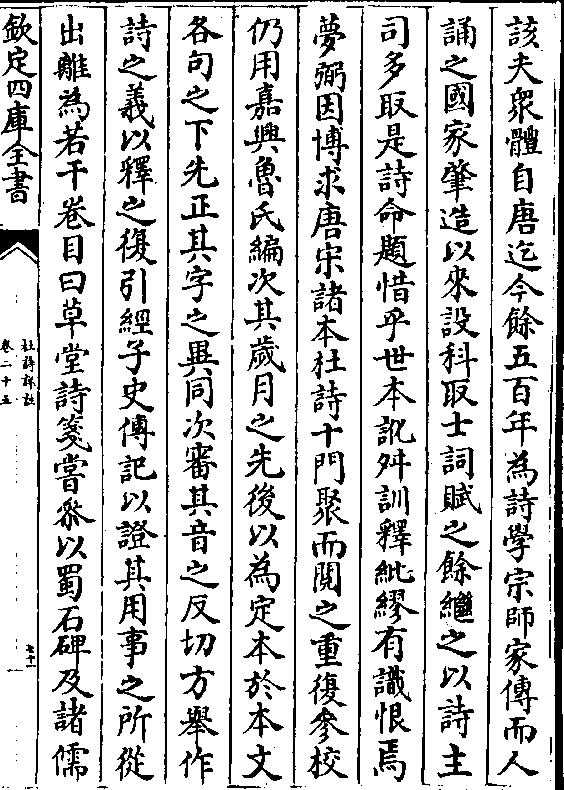 該夫衆體自唐迄今餘五百年為詩學宗師家傳而人
誦之國家肇造以來設科取士詞賦之餘繼之以詩主
司多取是詩命題惜乎世本訛舛訓釋紕繆有識恨焉
夢弼因博求唐宋諸本杜詩十門聚而閱之重復參校
仍用嘉興魯氏編次其歲月之先後以為定本於本文
各句之下先正其字之異同次審其音之反切方舉作
詩之義以釋之復引經子史傳記以證其用事之所從
出離為若干卷目曰草堂詩箋嘗叅以蜀石碑及諸儒
欽定四庫全書
杜詩詳註
卷二十五
七十一